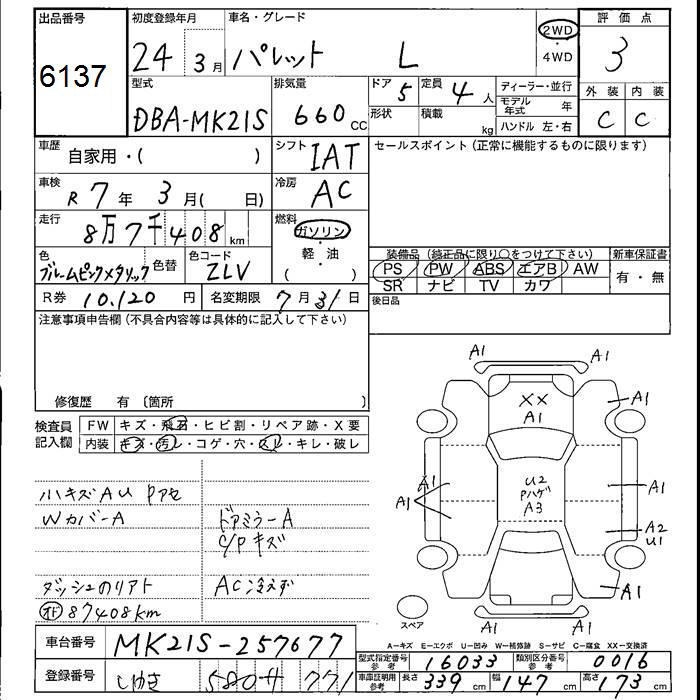 出品番号
6137
初度登録年月
24 3月
車名・グレード
パレット L
2WD
・
4WD
評価点
3
外装 内装
C C
型式
DBA-MK21S
排気量
660 cc
ドア 5
形状
定員 4人
積載 kg
ディーラー・並行
モデル年式 年
ハンドル 左・右
車歴
自家用・( )
シフト
IAT
セールスポイント(正常に機能するものに限ります)
車検
R 7年 3月( 日)
冷房
AC
走行
8万7千408 km
燃料
ガソリン
・
軽・油
( )
色
色替
色コード
ZLV
装備品(純正品に限り○をつけて下さい)
PS PW ABS エアB AW
SR ナビ TV カワ
新車保証書
有・無
R券 10,120 円
名変期限 7月31日
後日品
注意事項申告欄(不具合内容等は具体的に記入して下さい)
修復歴 有 〔箇所 〕
検査員
記入欄
FW キズ・飛石・ヒビ割・リペア跡・X要
内装 キズ・汚レ・コゲ・穴・スレ・キレ・破レ
ハキズAU Pアセ
Wカバ-A
ドアミラ-A
C/Pキズ
ダッシュのリアト
AC冷えず
オド 87408km
A1
A1
XX
A1
A1
A1
A1
A1
A1
U2
Pハゲ
A3
A1
A2
U1
A1
A1
スペア
A-キズ E-エクボ U-凹み W-補修跡 S-サビ C-腐食 XX-交換済
車台番号 MK21S-257677
登録番号 580 サ 771
型式指定番号
参考
16033
類別区分番号
参考
0016
車庫証明用
参考
長さ 339 cm 幅 147 cm 高さ 173 cm